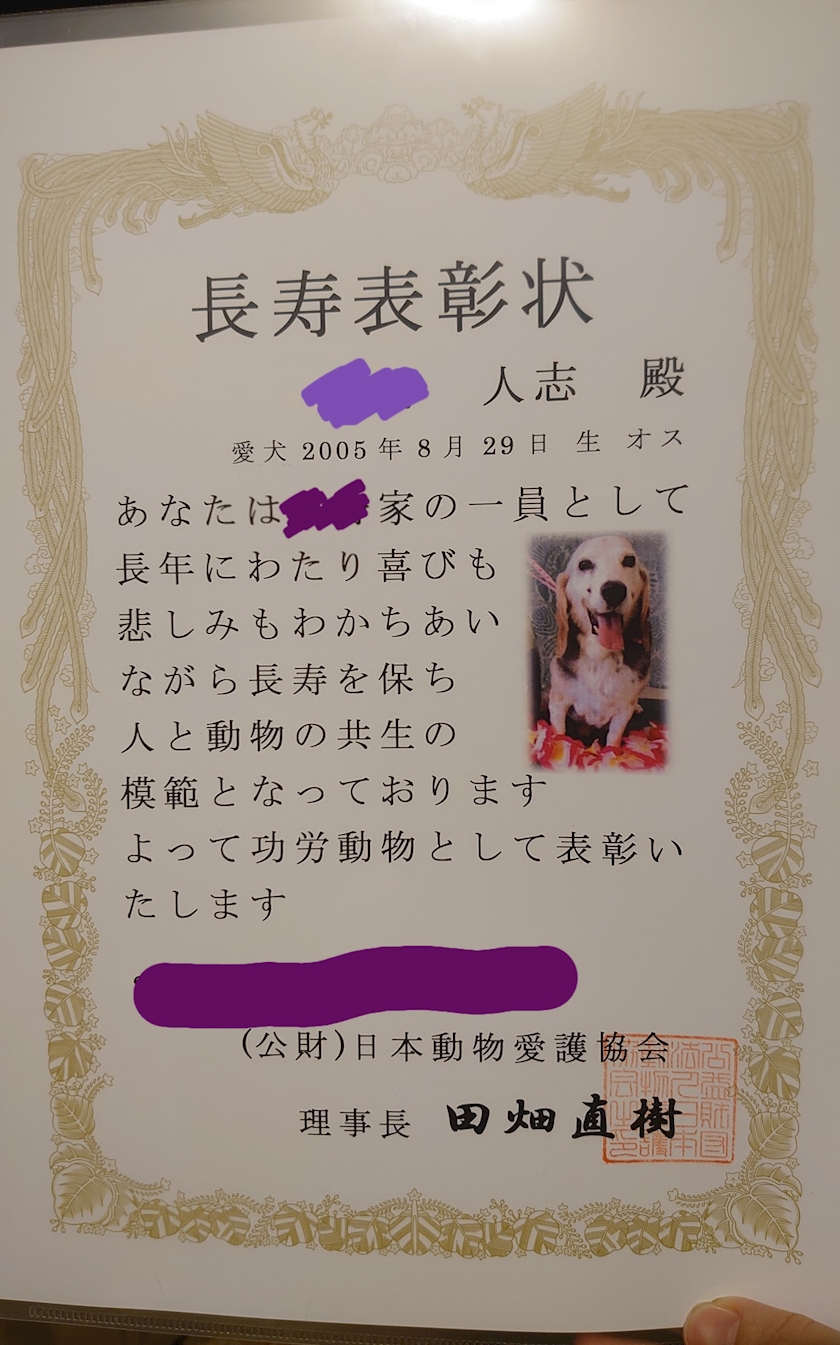 長寿表彰状
人志 殿
愛犬 2005年8月29日 生 オス
あなたは家の一員として
長年にわたり喜びも
悲しみもわかちあい
ながら長寿を保ち
人と動物の共生の
模範となっております
よって功労動物として表彰い
たします
(公財)日本動物愛護協会
理事長 田畑直樹